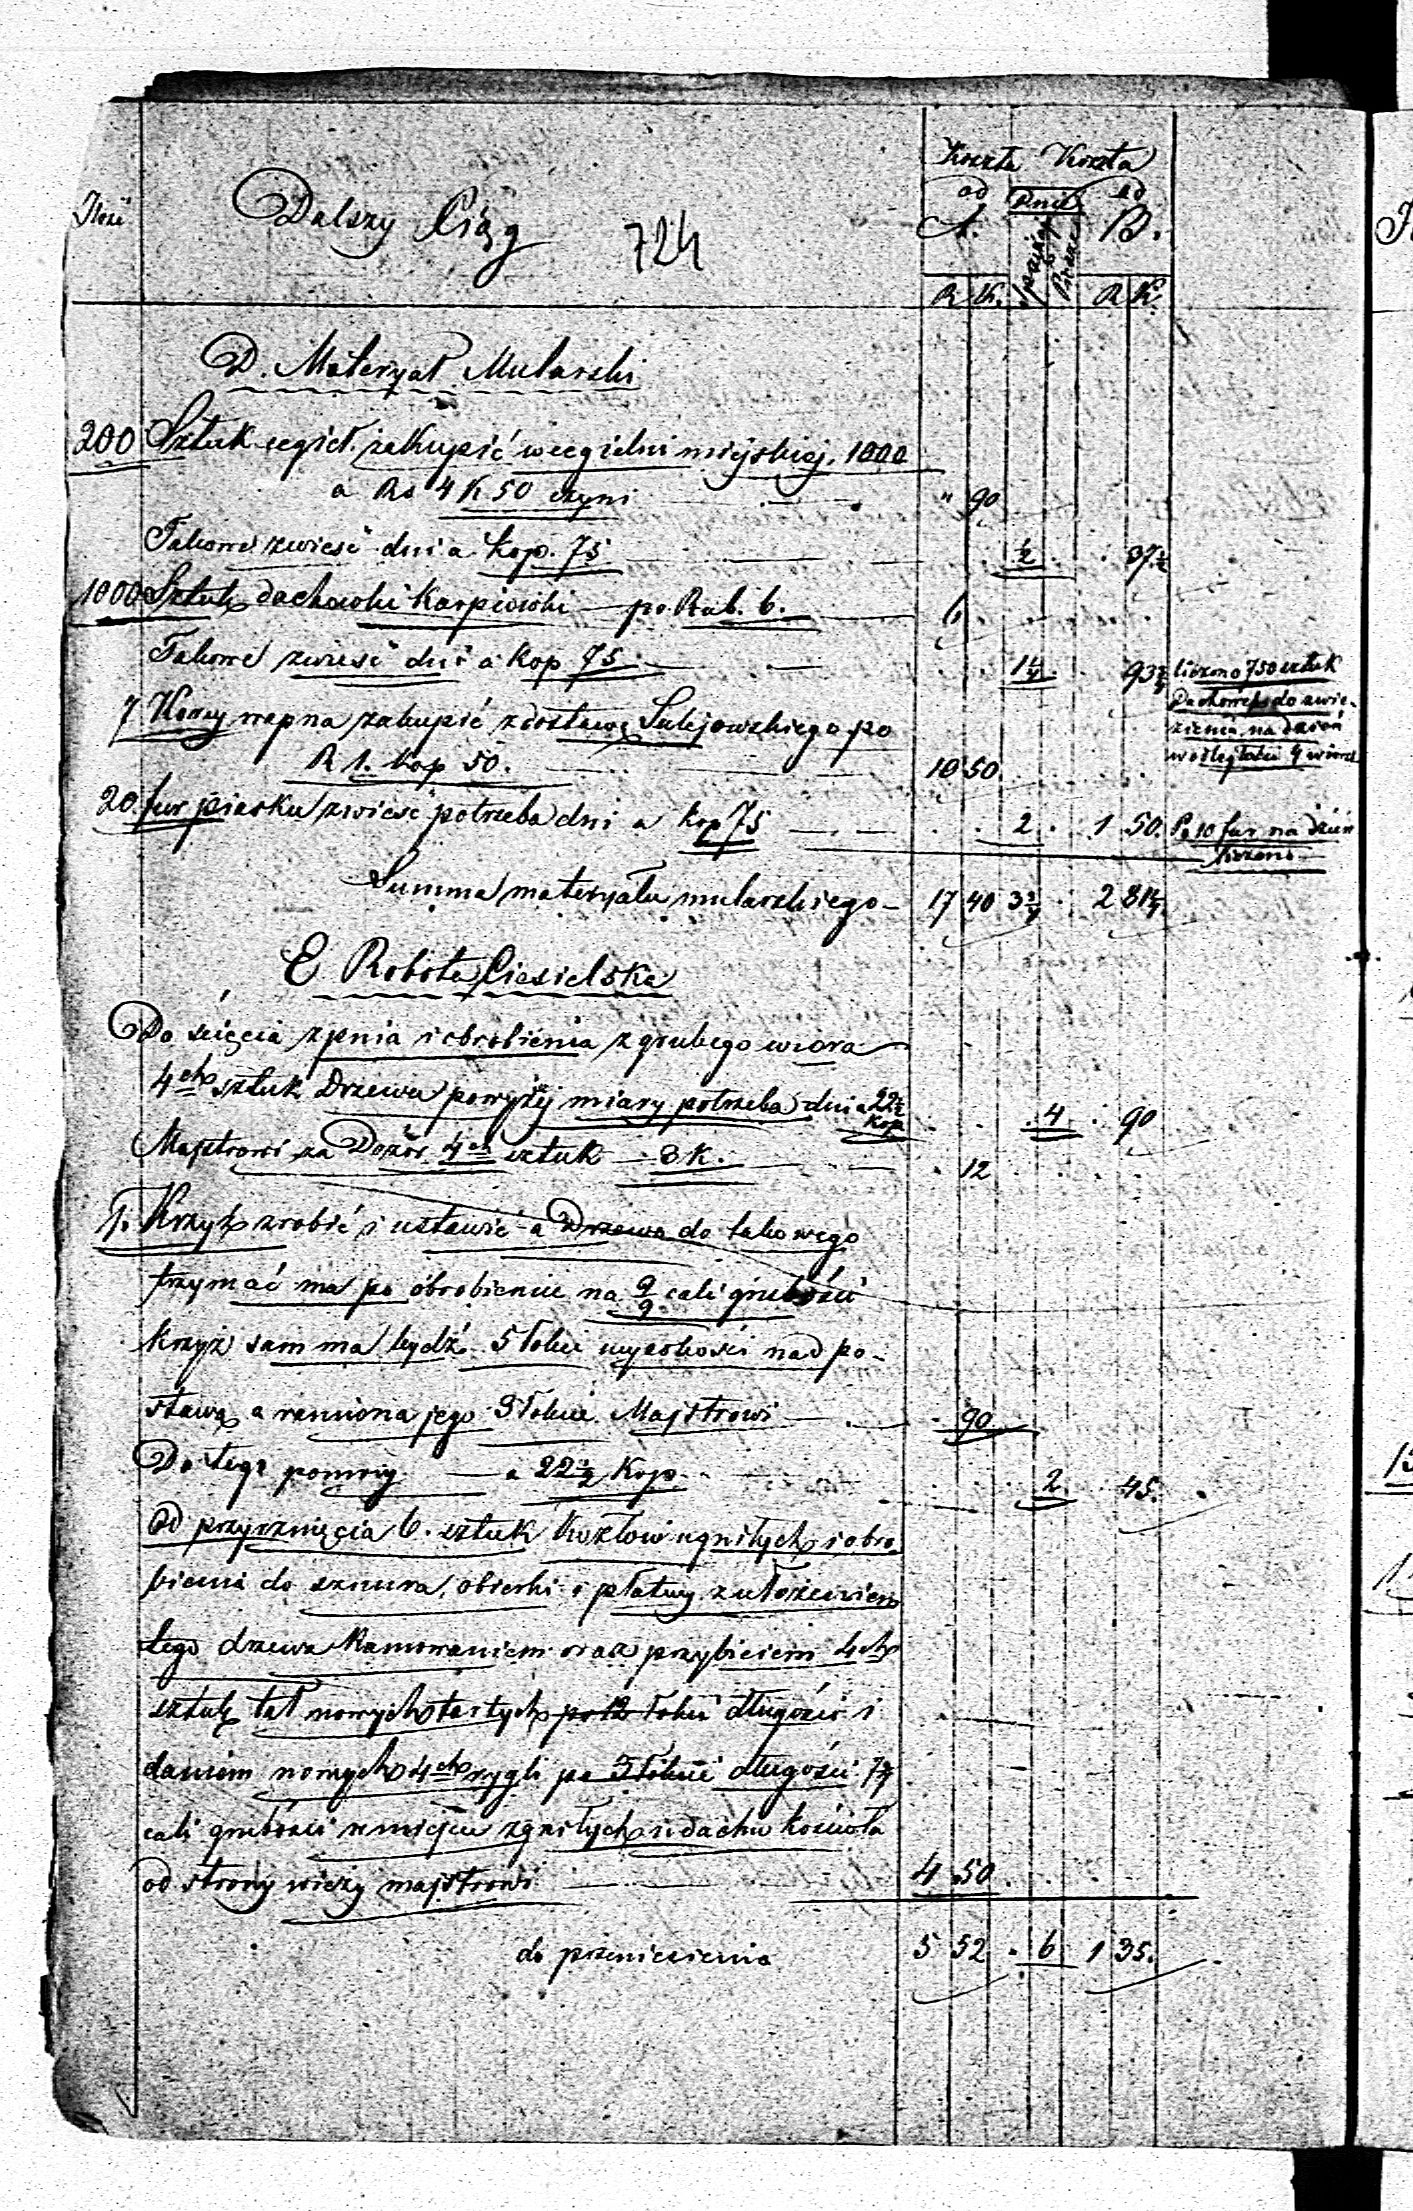 Koszta Koszta
Ilość Dalszy Ciąg 724 od A. Dnie od B.
Sprzężaj Piesze
R K. R K.
D. Materyał Mularski
200 Sztuk cegieł zakupić w cegielni miejskiej, 1000
a Rs 4 K 50 czyni " 90
Takowe zwieść dni a kop. 75 ½ 37½
1000 Sztuk dachówki Karpiówki po Rub. 6. 6
Takowe zwieść dni a Kop 75 1¼ 93¾ liczono 750 sztuk
Dachówek do zwie-
zienia na dzień
w odległości 4 wiorst
7 Korcy wapna zakupić z dostawą Sulejowskiego po
R 1. kop 50. 10 50
20 fur piasku zwieść potrzeba dni a kop 75 2 1 50. Po 10 fur na dzień
liczono
Summa materyału mularskiego 17 40 3¾ 2 81¼
E Robota Ciesielska
Do ścięcia z pnia i obrobienia z grubego wióra
4ch sztuk Drzewa powyżej miary potrzeba dni a 22½ Kop 4 90
Majstrowi za Dozór 4ch sztuk 3 K. 12
1. Krzyż zrobić i ustawić a Drzewo do takowego
trzymać ma po obrobieniu na 9/9 cali grubości
krzyż sam ma bydź 5 łokci wysokości nad po-
stawą a ramiona jego 3 łokcie Majstrowi 90
Do tego pomocy a 22½ Kop 2 45.
Od przyrznięcia 6. sztuk Kozłów ugniłych i obro-
bienia do sznura, obierki i płatwy z ułożeniem
tego drzewa Kamowaniem oraz przybiciem 4ch
sztuk łat nowych tartych po 12 łokci długości i
daniem nowych 4ch rygli po 3 łokcie długości 7/7
cali grubości w miejsce zgniłych u dachu kościoła
od strony wieży majstrowi 4 50
do przeniesienia 5 52 6 1 35.